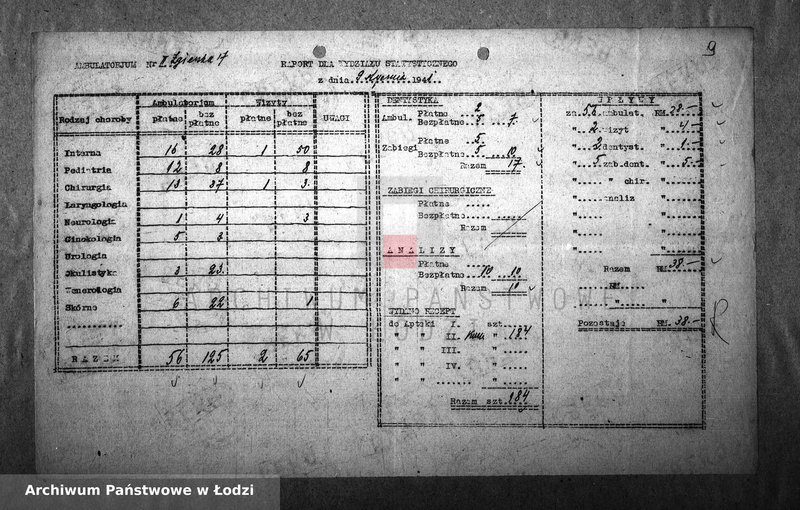 9
AMBULATORJUM Nr II Zgierska 17
RAPORT DLA WYDZIAŁU STATYSTYCZNEGO
z dnia 9 1941
Rodzaj choroby Ambulatorjum Wizyty UWAGI
płatne bez płatne płatne bez płatne
Interna 16 28 1 50
Pediatria 12 8 8
Chirurgia 13 37 1 3
Laryngologia
Neurologia 1 4 3
Ginekologia 5 3
Urologia
Okulistyka 3 23
Wenerologia
Skórne 6 22 1
..........
RAZEM 56 125 2 65
DENTYSTYKA
Ambul. Płatne 2
Bezpłatne 5 7
Zabiegi Płatne 5
Bezpłatne 5 10
Razem 17
ZABIEGI CHIRURGICZNE
Płatne .....
Bezpłatne ..........
Razem .....
ANALIZY
Płatne .....
Bezpłatne 10 10
Razem 10
WYDANO RECEPT
do Apteki I. szt. .....
" " II. " 184
" " III. " .....
" " IV. " .....
" " ....... " .....
Razem szt. 184
WPŁYWY
za 56 ambulat. RM. 28.-
" 2 wizyt " 4.-
" 2 dentyst. " 1.-
" 5 zab.dent. " 5.-
" " chir. " .....
" analiz " .....
Razem RM. 38.-
RM.
Pozostaje RM. 38.-
ARCHIWUM PAŃSTWOWE
W ŁODZI
Archiwum Państwowe w Łodzi